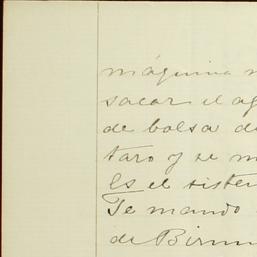 máquina
sacar el
de bolsa de
taro y se
Es el siste
Te mando
de Birm